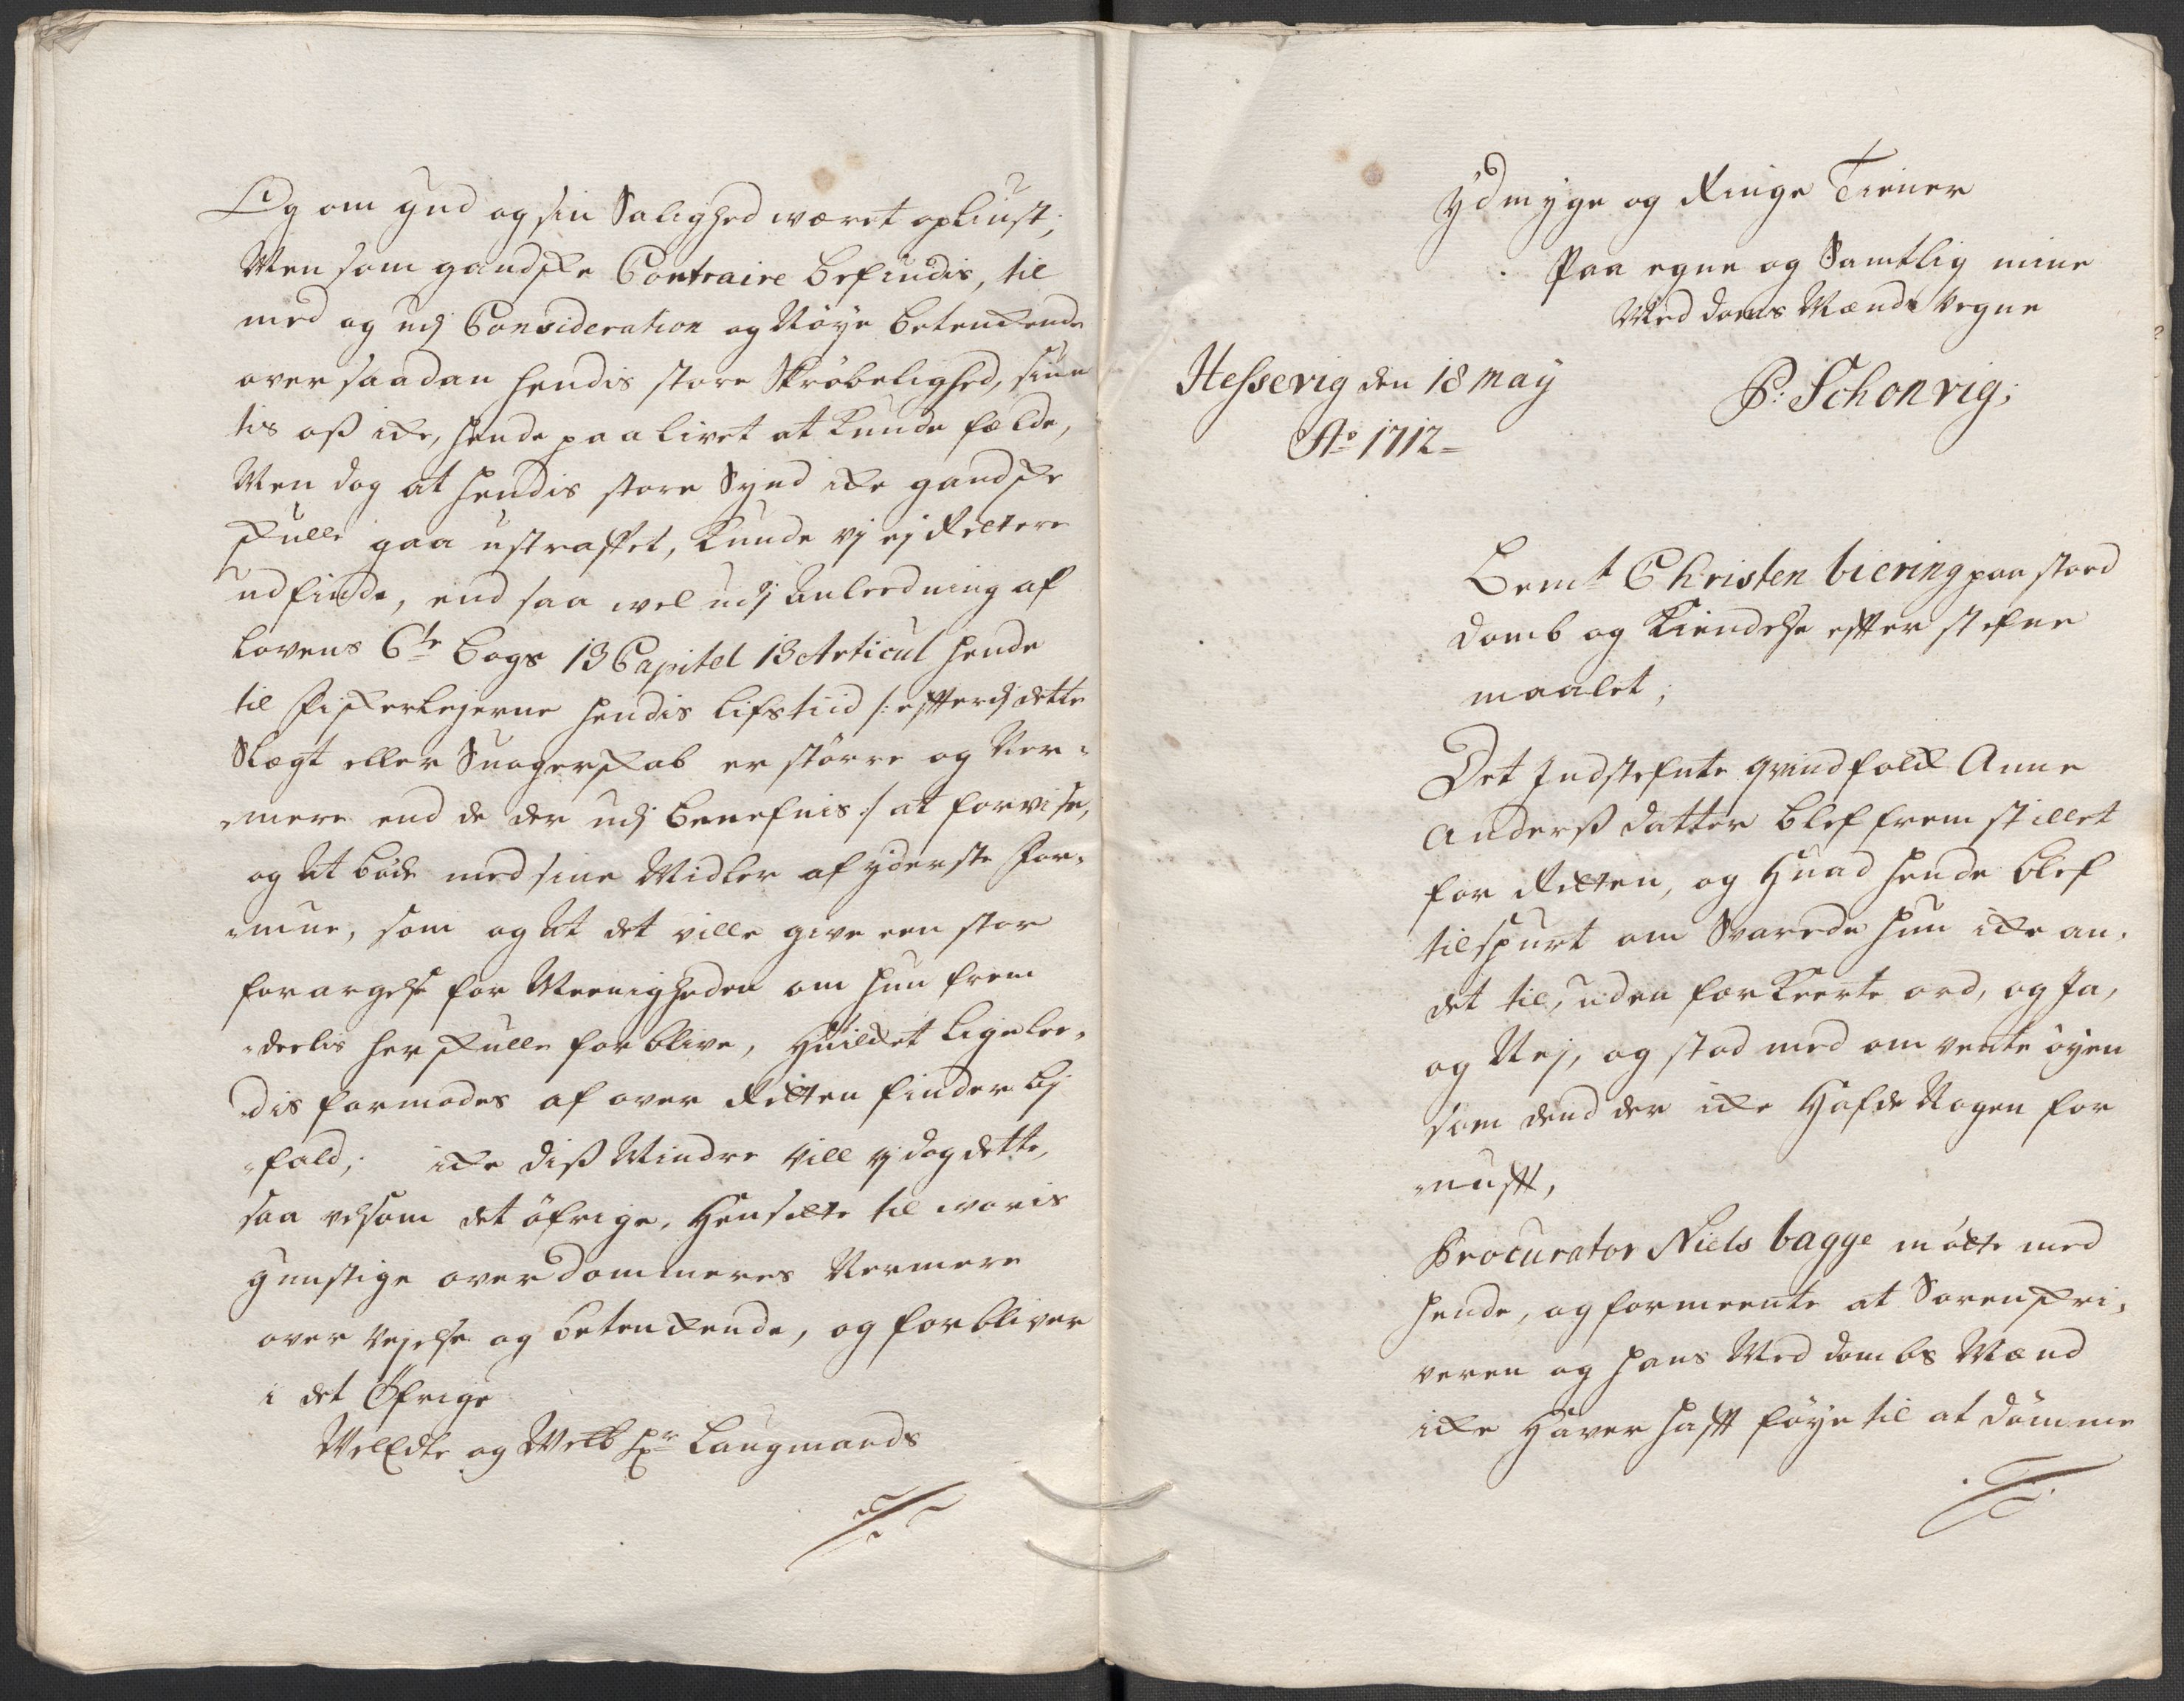 Og om gud og sin Salighed været opliust;
Men som gandske Contraire befindis, til
med og udj Consideration og Nöye betenkende
over saadan hendis store Skröbelighed, siun
tis oss icke, hende paa livet at kunde fælde,
Men dog at hendis store Synd icke gandske
skulle gaa ustraffet, kunde vj ej Rettere
udfinde, end saa wel udj Anleedning af
lovens 6te bogs 13 Capitel 13 Articul hende
til Fiskerlejerne hendis lifstiid /: efftersom dette
Slægt eller Suogerskab er större og Ner-
mere end de der udj benefnis :/ at forvise,
og at böde med sine Midler af yderste for-
mue, som og at det ville give een stor
forargelse for Meenigheden om hun frem
deelis her skulle forblive, Huilket ligelee-
dis formodes af over Retten finder bj
fald; icke diss Mindre vill vj dog dette,
saa velsom det öfrige, Henstille til woris
gunstige over dommeres Nermere
over vejelse og betenkende, og forbliver
i det Öfrige
WelEdle og Welb Hr Laugmands
Ydmyge og Ringe Tiener
Paa egne og Samtlig mine
Med doms Mænds vegne
Hessevig den 18 May P: Schonvig;
Ao 1712
Bemt Christen biering paastoed
domb og Kiendelse effter stefne
maalet;
Det Indstefnte qvindfolck Anne
Anderss datter blef frem stillet
for Retten, og Huad hende blef
tilspurt om Svarede hun icke an-
det til, uden forkeerte ord, og Ja,
og Nej, og stod med om vente öyen
som dend der icke Hafde Nogen for
nufft,
Procurator Niels bagge mötte med
hende, og formeente at Sorenskri-
veren og hans Med dombs Mænd
icke Haver hafft föye til at dömme